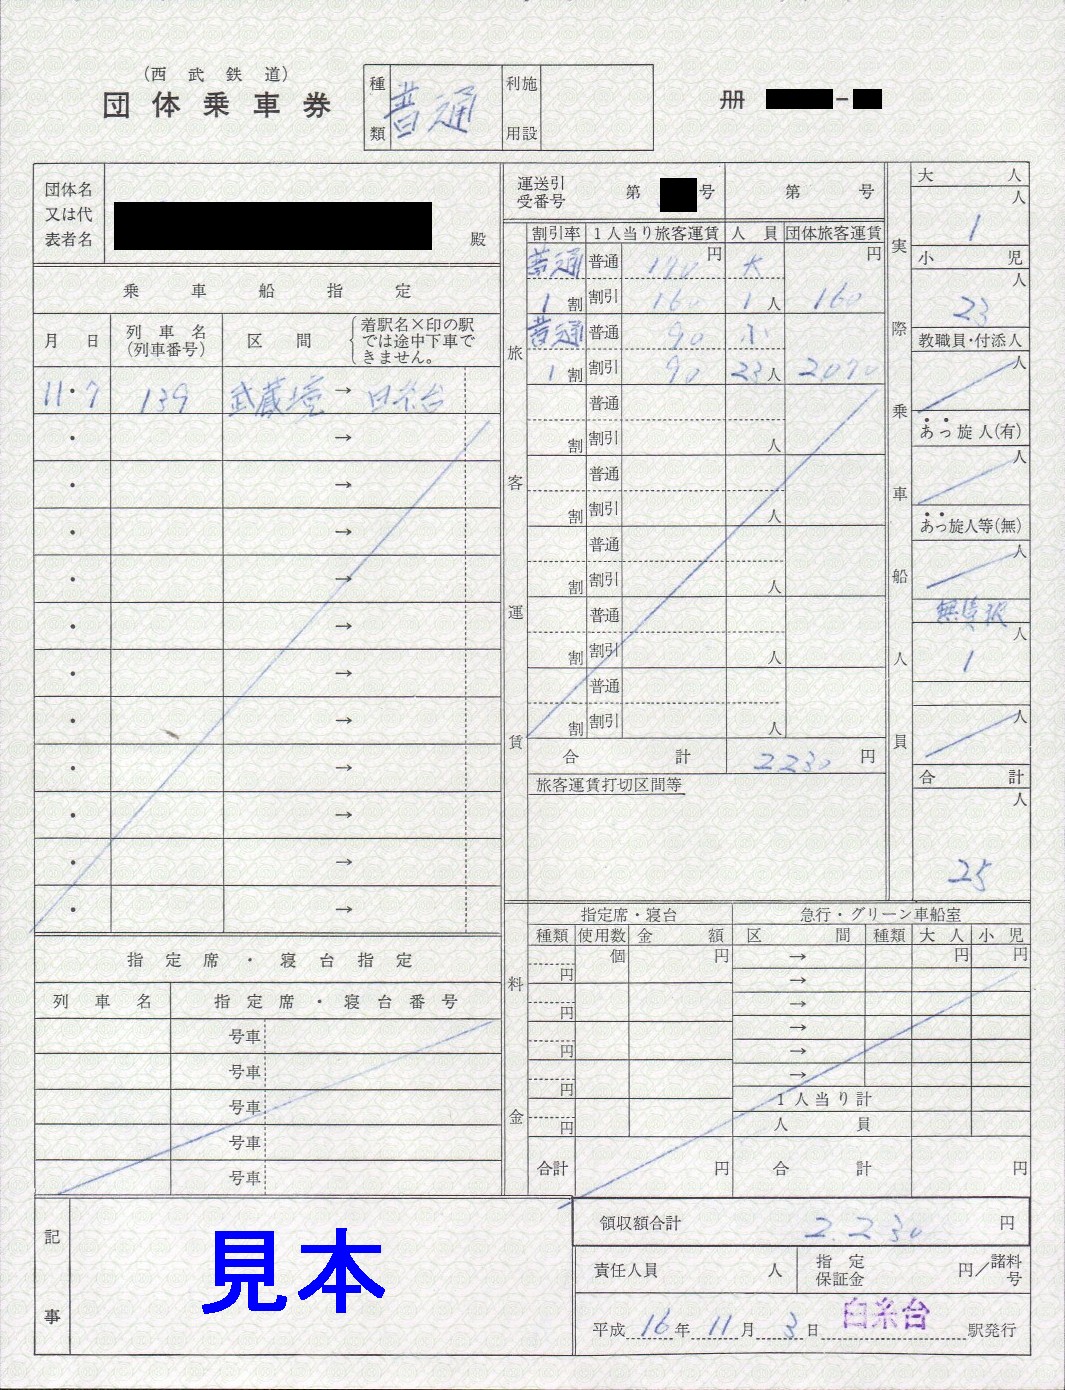 (西武鉄道)
団体乗車券
種類 普通 利用施設
冊 -
団体名又は代表者名 殿
運送引受番号 第 号 第 号
乗車船指定
月日 列車名(列車番号) 区間 着駅名×印の駅では途中下車できません。
11・7 139 武蔵境 → 白糸台
・ →
・ →
・ →
・ →
・ →
・ →
・ →
・ →
・ →
・ →
・ →
指定席・寝台指定
列車名 指定席・寝台番号
号車
号車
号車
号車
号車
旅客運賃
割引率 1人当り旅客運賃 人員 団体旅客運賃
普通 普通 170円 大 円
1割 割引 160 1人 160
普通 普通 90 小
1割 割引 90 23人 2070
普通
割 割引 人
普通
割 割引 人
普通
割 割引 人
普通
割 割引 人
普通
割 割引 人
合計 2230円
旅客運賃打切区間等
実際乗車船人員
大人
人
1
小児
人
23
教職員・付添人
人
あっ旋人(有)
人
あっ旋人等(無)
人
無賃扱
人
1
人
合計
人
25
料金
指定席・寝台 急行・グリーン車船室
種類 使用数 金額 区間 種類 大人 小児
円 個 円 → 円 円
円 →
円 →
円 →
円 →
→
1人当り計
人員
合計 円 合計 円
記事
見本
領収額合計 2,230円
責任人員 人 指定保証金 円/諸料号
平成16年11月3日 白糸台 駅発行